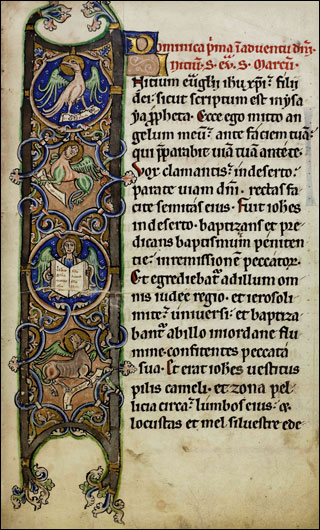 Dominica p̄ma in adventu dm̄i
Initiū. S. eṽ. S. Marcū.
Nitium eūglīi ihu xp̄i. filii
dei. sicut scriptum est in ysa
ya p̄pheta. Ecce ego mitto an
gelum meū. ante faciem tuā.
qui p̄parabit viam tuā ante te.
Vox clamantis in deserto.
parate viam dn̄i. rectas fa
cite semitas eius. Fuit iohēs
in deserto. baptizans et pre
dicans baptismum peniten
tie. in remissionem peccator.
Et egrediebat ad illum om
nis iudee regio. et ierosoli
mite universi. et baptiza
bant ab illo in iordane flu
mine. confitentes peccata
sua. Et erat iohēs vestitus
pilis cameli. et zona pel
licia circa lumbos eius. &
locustas et mel silvestre ede